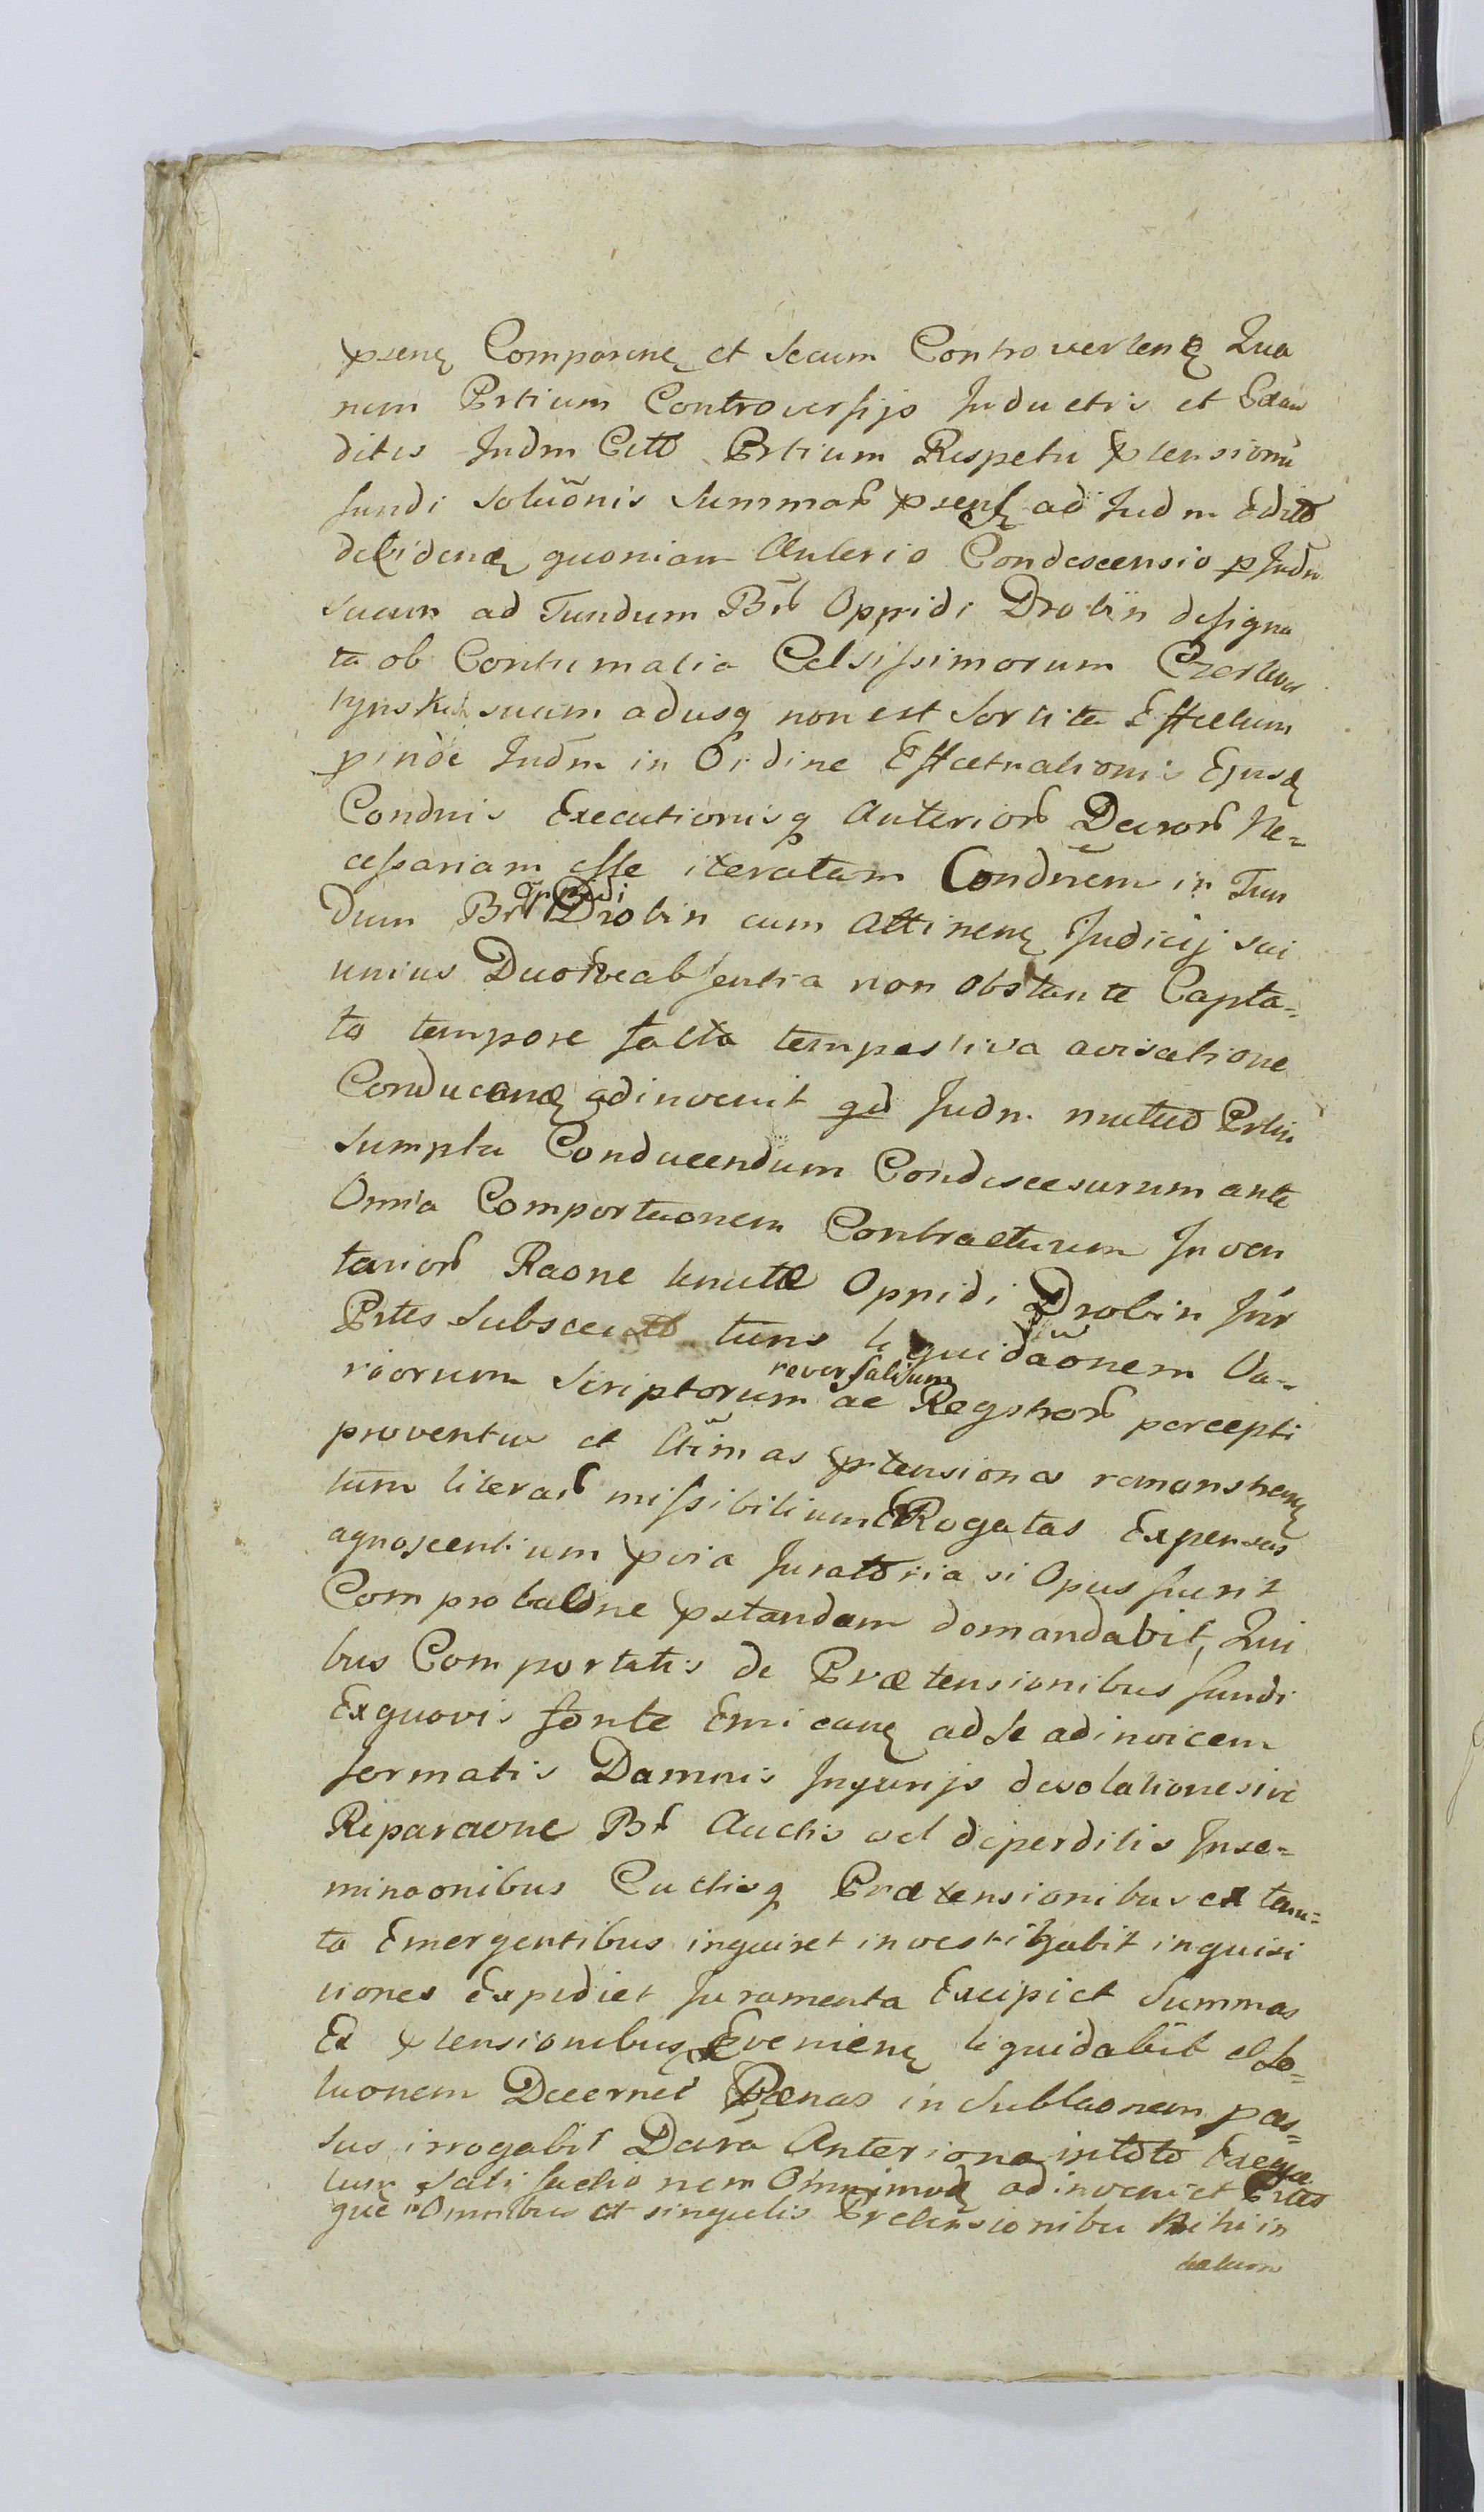 psenꝫ Comparenꝫ et Secum Controvertenꝫ Qua
rum Prtium Controversijs Inductis et Exau
ditis Judm Citt Prtium Respetu ptensionū
fundi Soluōnis Summar psenꝫ ad Judm Edit
debidenꝫ quoniam Anterio Condescensio p Judm
suum ad Fundum Br Oppidi Drobin designa
ta ob Contumatia Celsissimorum Czertwer
tynskich suum adusq non est Sortita Effectum
pinde Judm in Ordine Effectuationis Ejusd
Condnis Executionisq Anterior Decror Ne=
cessariam esse iteratam Condnem in Fun
dum Br Oppidi Drobin cum Attinenꝫ Judicij sui
unius Duorve absentia non obstante Capta=
to tempore facta tempestiva avisatione
Conducenꝫ adinvenit qd Judm mutuo Prtiū
Sumptu Conducendum Condescesurum ante
Omnia Comportaonem Contractuum Inven
tarior Raone tenutæ Oppidi Drobin Inr
Prtes Subsecut tum liquidaōnem Va=
riorum Scriptorum reversalium ac Regstror percepti
proventus et Aīmas prtensiones remonstranꝫ
tum literar missibilium ERogatas Expensas
agnoscentium pvia Juratoria si Opus fuerit
Comprobaōne pstandam demandabit, Qui
bus Comportatis de Prætensionibus fundi
Exquovis fonte Emicanꝫ adse adinvicem
formatis Damnis Injurijs desolatione sive
Reparaone Br Auctis vel deperditis Inse=
minaonibus Cuctisq Prætensionibus ex tenu=
ta Emergentibus inquiret investigabit inquisi
tiones Expediet Juramenta Excipiet Summas
Ex ptensionibus Evenienꝫ liquidabit et So=
luonem Decernet Pænas in Sublaonem pas=
sus irrogabit Decra Anteriora in toto Exequē
tum Satisfactionem Omnimodꝫ adinveniet Prtes
que in Omnibus et singulis Prætensionibus Nihi in
tactum